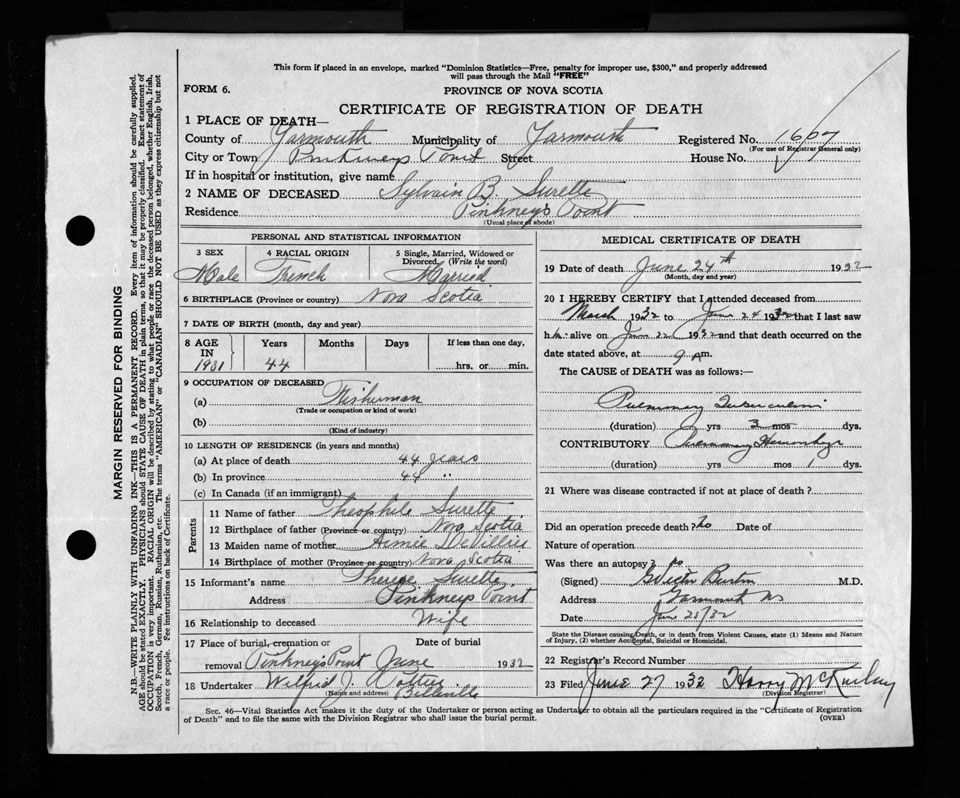 This form if placed in an envelope, marked "Dominion Statistics—Free, penalty for improper use, $300," and properly addressed
will pass through the Mail "FREE"
FORM 6.
PROVINCE OF NOVA SCOTIA
CERTIFICATE OF REGISTRATION OF DEATH
1 PLACE OF DEATH—
County of Yarmouth Municipality of Yarmouth Registered No. 1607
(For use of Registrar General only)
City or Town Pinkneys Point Street House No.
If in hospital or institution, give name
2 NAME OF DECEASED Sylvain B. Surette
Residence Pinkney's Point
(Usual place of abode)
PERSONAL AND STATISTICAL INFORMATION
3 SEX 4 RACIAL ORIGIN 5 Single, Married, Widowed or
Divorced. (Write the word)
Male French Married
6 BIRTHPLACE (Province or country) Nova Scotia
7 DATE OF BIRTH (month, day and year)
8 AGE IN 1931 Years 44 Months Days If less than one day,
hrs. or min.
9 OCCUPATION OF DECEASED
(a) Fisherman
(Trade or occupation or kind of work)
(b)
(Kind of industry)
10 LENGTH OF RESIDENCE (in years and months)
(a) At place of death 44 years
(b) In province 44 "
(c) In Canada (if an immigrant)
Parents
11 Name of father Theophile Surette
12 Birthplace of father (Province or country) Nova Scotia
13 Maiden name of mother
14 Birthplace of mother (Province or country) Nova Scotia
15 Informant's name Therese Surette
Address Pinkneys Point
16 Relationship to deceased Wife
17 Place of burial, cremation or Date of burial
removal Pinkneys Point June 1932
18 Undertaker Wilfred J.
(Name and address) Belleville
MEDICAL CERTIFICATE OF DEATH
19 Date of death June 24th 1932
(Month, day and year)
20 I HEREBY CERTIFY that I attended deceased from
March 1932 to June 24 1932 that I last saw
h im alive on June 22 1932 and that death occurred on the
date stated above, at 9 P.m.
The CAUSE of DEATH was as follows:—
Pulmonary Tuberculosis
(duration) yrs 3 mos dys.
CONTRIBUTORY Pulmonary Hemorrhage
(duration) yrs mos 1 dys.
21 Where was disease contracted if not at place of death?
Did an operation precede death? No Date of
Nature of operation
Was there an autopsy? no
(Signed) Burton M.D.
Address Yarmouth NS
Date 32
State the Disease causing Death, or in death from Violent Causes, state (1) Means and Nature
of Injury, (2) whether Accidental, Suicidal or Homicidal.
22 Registrar's Record Number
23 Filed June 27 1932 Harry
(Division Registrar)
Sec. 46—Vital Statistics Act makes it the duty of the Undertaker or person acting as Undertaker to obtain all the particulars required in the "Certificate of Registration
of Death" and to file the same with the Division Registrar who shall issue the burial permit.
(OVER)
MARGIN RESERVED FOR BINDING
N.B.—WRITE PLAINLY WITH UNFADING INK—THIS IS A PERMANENT RECORD. Every item of information should be carefully supplied.
AGE should be stated EXACTLY. PHYSICIANS should STATE CAUSE OF DEATH in plain terms, so that it may be properly classified. Exact statement of
OCCUPATION is very important. RACIAL ORIGIN will be described by stating to what people or race the deceased person belonged, whether English, Irish,
Scotch, French, German, Russian, Ruthenian, etc. The terms "AMERICAN" or "CANADIAN" SHOULD NOT BE USED as they express citizenship but not
a race or people. See instructions on back of Certificate.